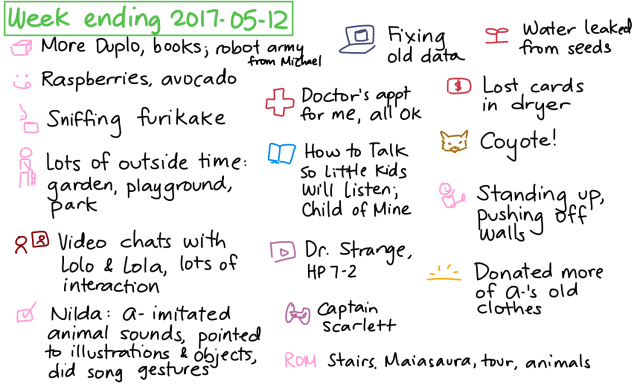 Week ending 2017-05-12
More Duplo, books; robot army
from Michael
Raspberries, avocado
Sniffing furikake
Lots of outside time:
garden, playground,
park
Video chats with
Lolo & Lola, lots of
interaction
Nilda: A- imitated
animal sounds, pointed
to illustrations & objects,
did song gestures
Fixing
old data
Doctor's appt
for me, all OK
How to Talk
so Little Kids
Will Listen;
Child of Mine
Dr. Strange,
HP 7-2
Captain
Scarlett
ROM Stairs, Maiasaura, tour, animals
Water leaked
from seeds
Lost cards
in dryer
Coyote!
Standing up,
pushing off
walls
Donated more
of A-'s old
clothes